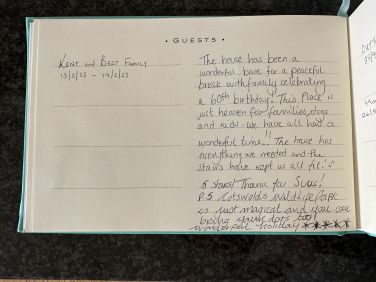 • GUESTS •
Kent and Best Family
13/2/23 - 19/2/23
The house has been a
wonderful base for a peaceful
break with family celebrating
a 60th birthday! This Place is
just heaven for families, dogs
and kids - we have all had a
wonderful time!! The house has
everything we needed and the
stairs have kept us all fit!
5 stars! Thank you Suas!
P.S Cotswolds Wildlife Park
is just magical and you can
bring your dogs too!
wonderful holiday *****